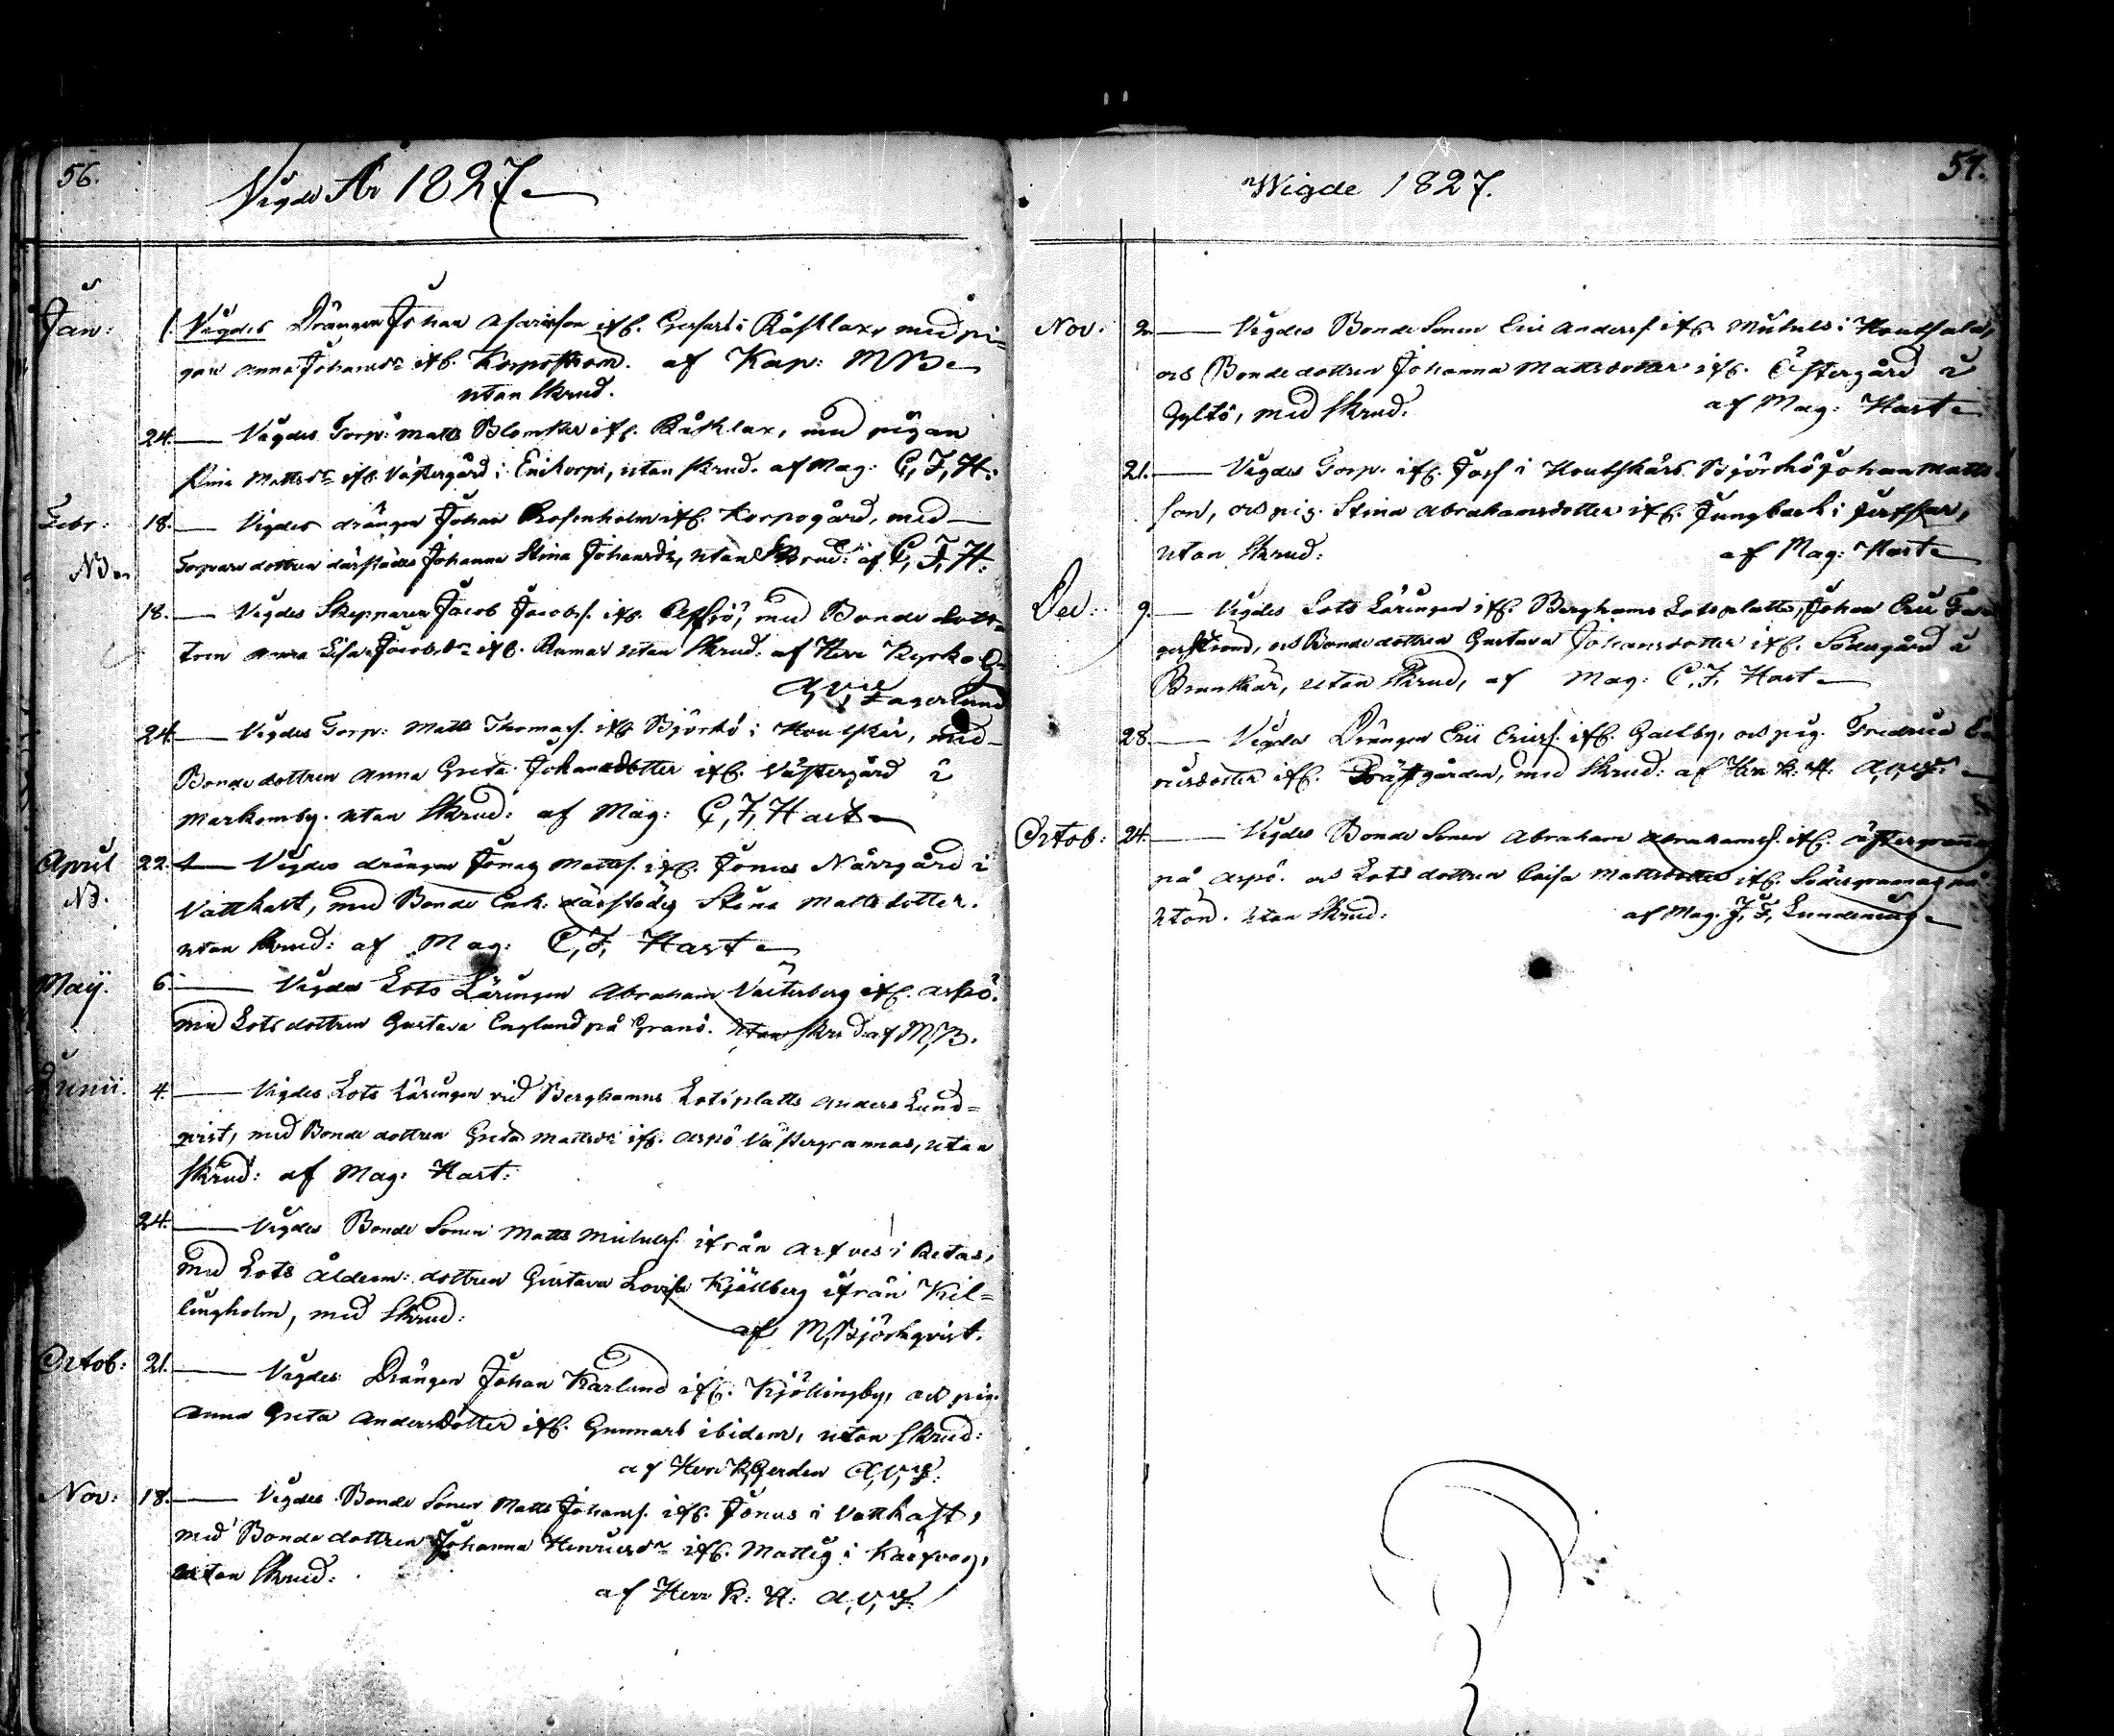 56.
Vigde År 1827
Jan: 1. Vigdes Drängen Johan ifr. i Råsklax, med pi-
gan Anna Johansdr ifr. Korpoström. af Kap: MB
utan Skrud.
24. Vigdes Torp: Matts Blomster ifr. Råsklax, med pigan
Mattsdr ifr. Västergård i Enikorpi, utan skrud. af Mag: C, F, H:
Febr: 18. Vigdes drängen Johan Rosenholm ifr. Korpogård, med
NB. Torpare dottren därstädes Johanna Stina Johansdr, utan Skrud: af C, F, H.
18. Vigdes Skepparen Jacob Jacobss. ifr. med Bonde dott-
ren Anna Lisa Jacobsdr ifr. Rumar utan Skrud: af Herr Kyrko
Fagerlund
24. Vigdes Torp: Matts Thomass. ifr Björkö i Houtskär, med
Bonde dottren Anna Greta Johansdotter ifr. Västergård i
Markomby. utan Skrud: af Mag: C, F, Hast
April 22. Vigdes drängen Jonas Mattss. ifr. Jonas Närrgård i
NB. Vattkast, med Bonde Enk: därstädes Stina Mattsdotter.
utan Skrud: af Mag: C, F, Hast
Maij. 6. Vigdes Lots Läringen Abraham Västerberg ifr. Aspö.
med Lots dottren Gustava Englund på Granö. Utan skrud af M, B.
Junii. 4. Vigdes Lots Läringen vid Berghamns Lotsplatts Anders Lund=
qvist, med Bonde dottren Greta Mattsdr ifr. Aspö Västergrannas, utan
Skrud: af Mag: Hast:
24. Vigdes Bonde Sonen Matts Michelss. ifrån Arfves i Retais,
med Lots Ålderm: dottren Gustava Lovisa Kjällberg ifrån Kil=
lingholm, med Skrud:
af M, Björkqvist.
Octob: 21. Vigdes Drängen Johan Karlund ifr. Kjöttingby, och pig.
Anna Greta Andersdotter ifr. Gunnars ibidem, utan Skrud:
af Herr K, Herden A, V, F.
Nov: 18. Vigdes Bonde Sonen Matts Johanss. ifr. Jonas i Vattkast,
med Bonde dottren Johanna Henricsdr ifr. Matts i
utan Skrud:
af Herr K: H: A, V, F.
57.
Wigde 1827.
Nov: 2. Vigdes Bonde Sonen Eric Anderss. ifr. Michels i
och Bonde dottren Johanna Mattsdotter ifr. Östergård i
Gyltö, med Skrud. af Mag: Hast
21. Vigdes Torp. ifr. i Houtskärs Björkö Johan Matts
son, och pig. Stina Abrahamsdotter ifr. Jungback i Jurfskär,
utan Skrud: af Mag: Hast
Dec: 9. Vigdes Lots Läringen ifr. Berghams Lotsplatts, Johan Eric
och Bonde dottren Gustava Johansdotter ifr. Södergård i
Brunskär, utan Skrud, af Mag: C, F, Hast
28. Vigdes Drängen Eric Ericss. ifr. Galtby, och pig. Fredrica
ricsdotter ifr. Prästgården, med Skrud: af Herr K: H: A, V, F.
Octob: 24. Vigdes Bonde Sonen Abraham Abrahamss. ifr. Östergrannas
på Aspö. och Lots dottren Caisa Mattsdotter ifr. Södergrannas på
Utön. Utan Skrud: af Mag. J, F, Lundenius